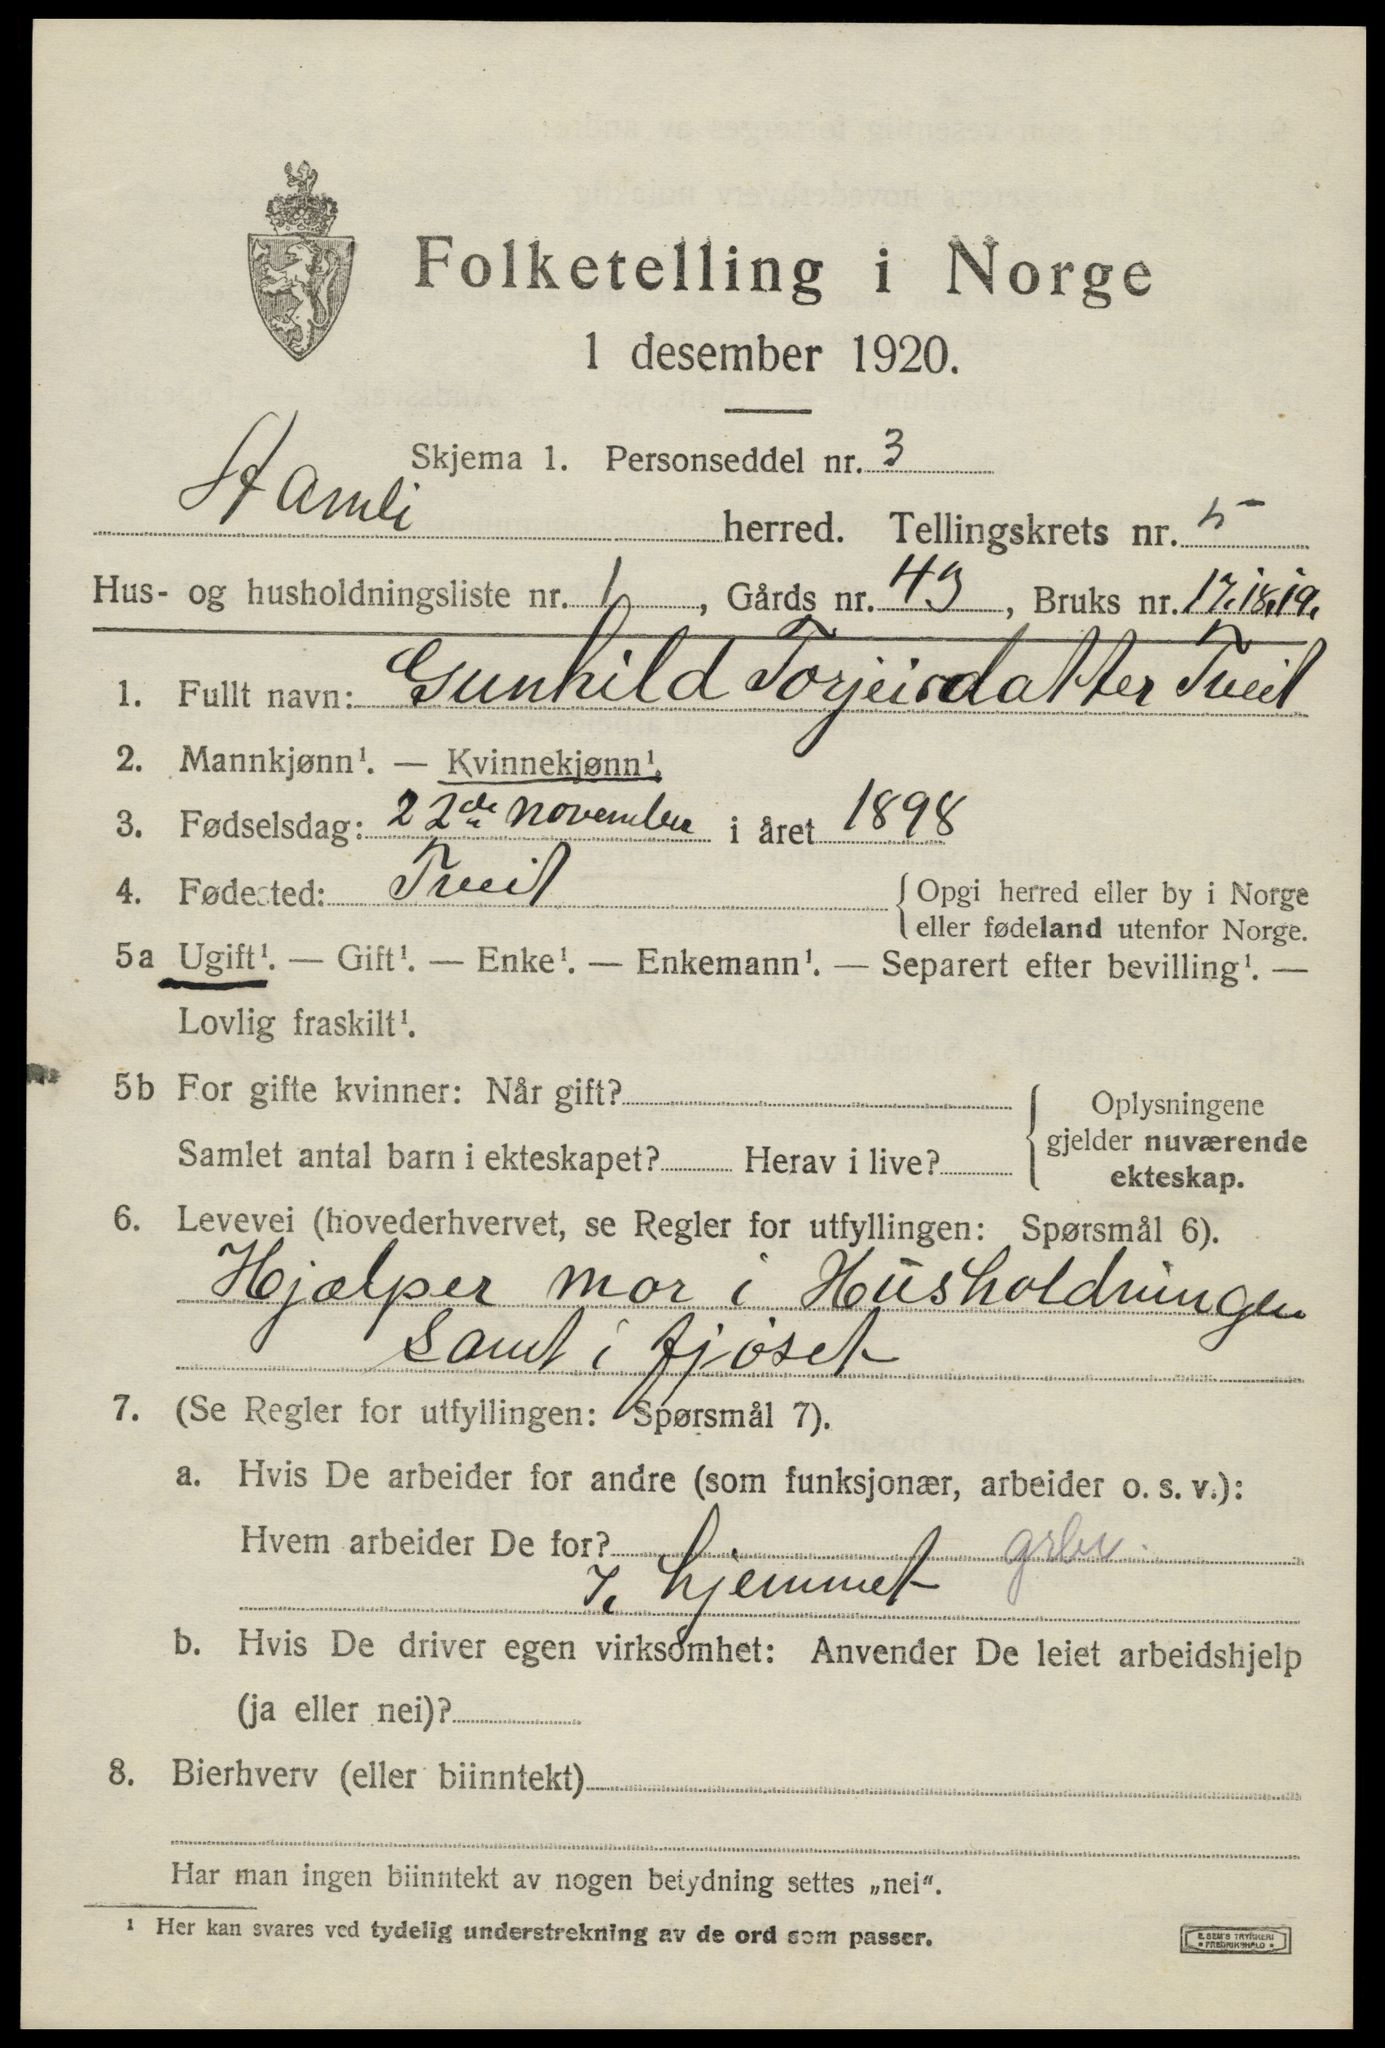 Folketelling i Norge
1 desember 1920.
Skjema 1. Personseddel nr. 3
Hamli herred. Tellingskrets nr. 5
Hus- og husholdningsliste nr. 1, Gårds nr. 43, Bruks nr. 17.18.19.
1. Fullt navn: Gunhild Torjeisdatter Tveit
2. Mannkjønn¹. — Kvinnekjønn¹.
3. Fødselsdag: 22de november i året 1898
4. Fødested: Tveit {Opgi herred eller by i Norge
eller fødeland utenfor Norge.
5a Ugift¹. — Gift¹. — Enke¹. — Enkemann¹. — Separert efter bevilling¹. —
Lovlig fraskilt¹.
5b For gifte kvinner: Når gift?
Samlet antal barn i ekteskapet? Herav i live?
{Oplysningene
gjelder nuværende
ekteskap.
6. Levevei (hovederhvervet, se Regler for utfyllingen: Spørsmål 6).
Hjælper mor i Husholdningen
samt i fjøset
7. (Se Regler for utfyllingen: Spørsmål 7).
a. Hvis De arbeider for andre (som funksjonær, arbeider o. s. v.):
Hvem arbeider De for?
I hjemmet
b. Hvis De driver egen virksomhet: Anvender De leiet arbeidshjelp
(ja eller nei)?
8. Bierhverv (eller biinntekt)
Har man ingen biinntekt av nogen betydning settes „nei“.
¹ Her kan svares ved tydelig understrekning av de ord som passer.
E. SEM'S TRYKKERI
• FREDRIKSHALD •